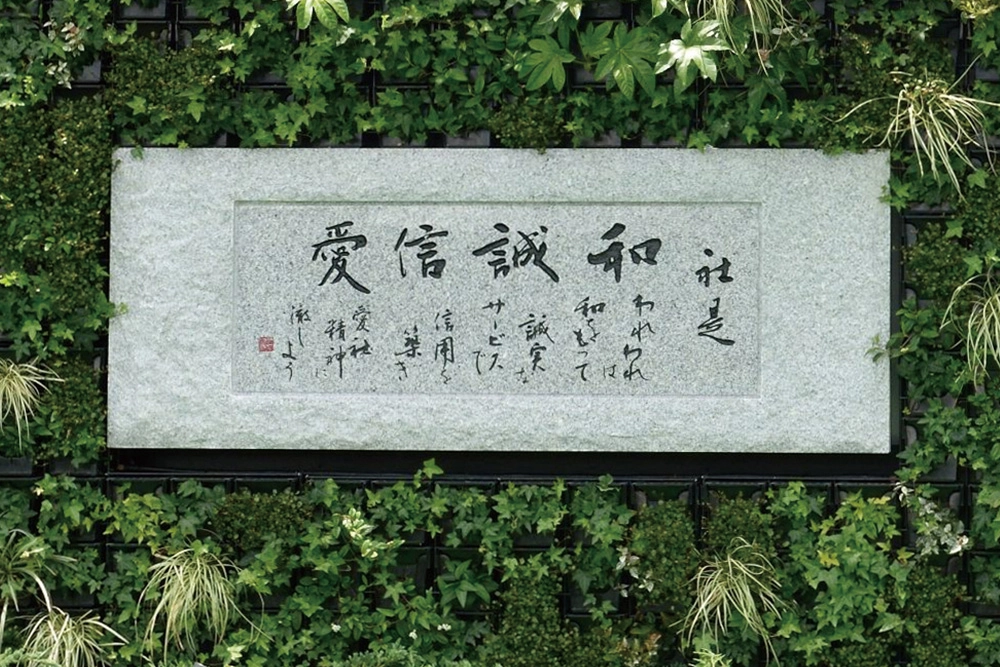 社是
和
誠
信
愛
われわれは
和をもって
誠実な
サービスで
信用を
築き
愛社
精神に
徹しよう